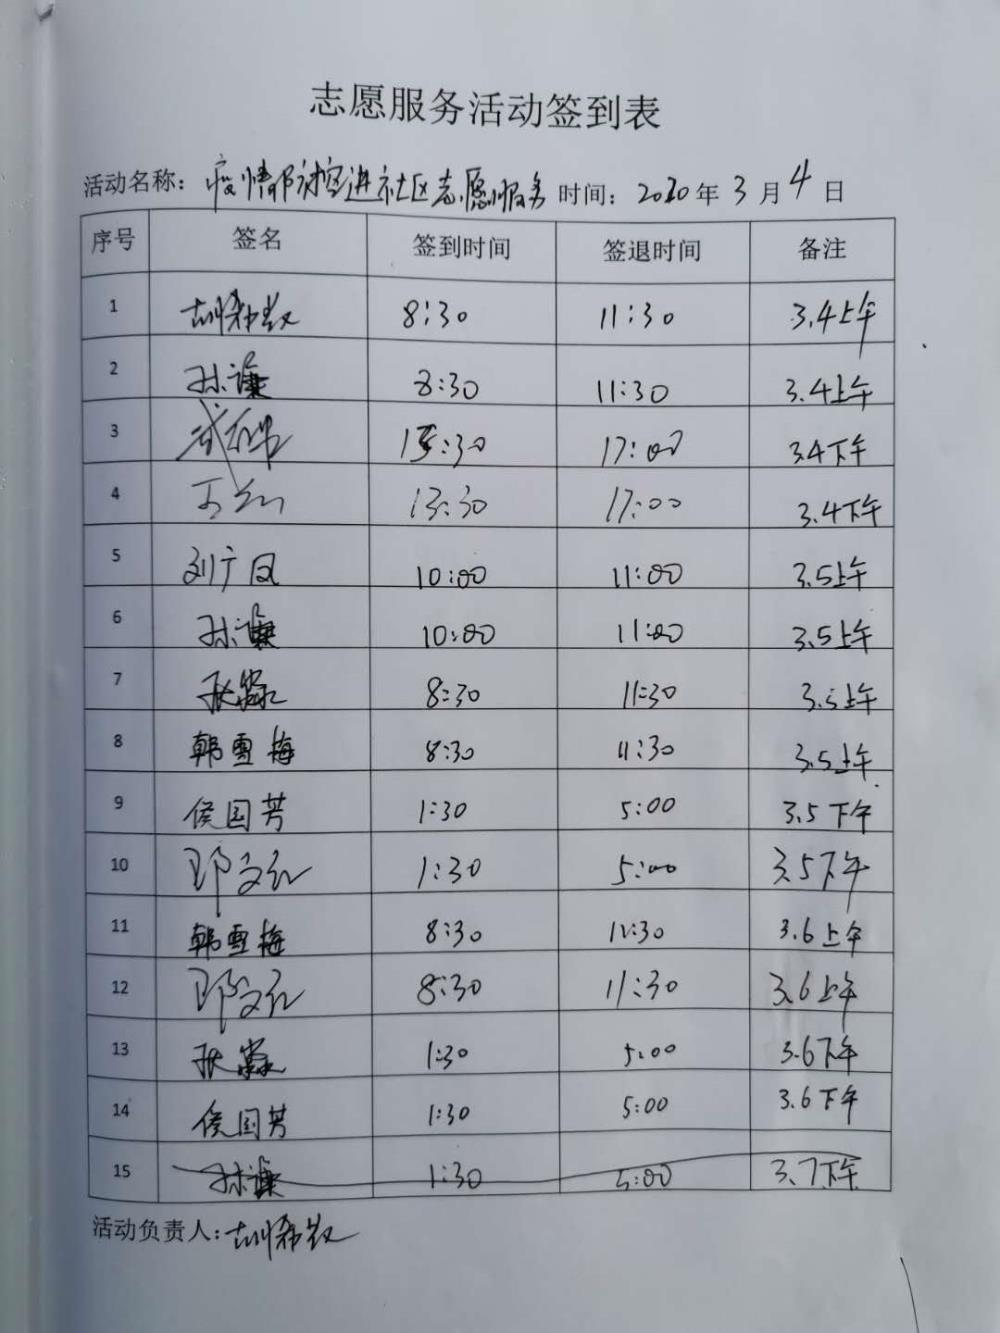 志愿服务活动签到表
活动名称：疫情防控进社区志愿服务 时间：2020年3月4日
序号 签名 签到时间 签退时间 备注
1 8:30 11:30 3.4上午
2 孙谦 8:30 11:30 3.4上午
3 :30 17:00 3.4下午
4 13:30 17:00 3.4下午
5 刘广凤 10:00 11:00 3.5上午
6 孙谦 10:00 11:00 3.5上午
7 8:30 11:30 3.5上午
8 韩雪梅 8:30 11:30 3.5上午
9 侯国芳 1:30 5:00 3.5下午
10 邓文红 1:30 5:00 3.5下午
11 韩雪梅 8:30 3.6上午
12 邓文红 8:30 11:30 3.6上午
13 1:30 5:00 3.6下午
14 侯国芳 1:30 5:00 3.6下午
15 孙谦 1:30 5:00 3.7下午
活动负责人：